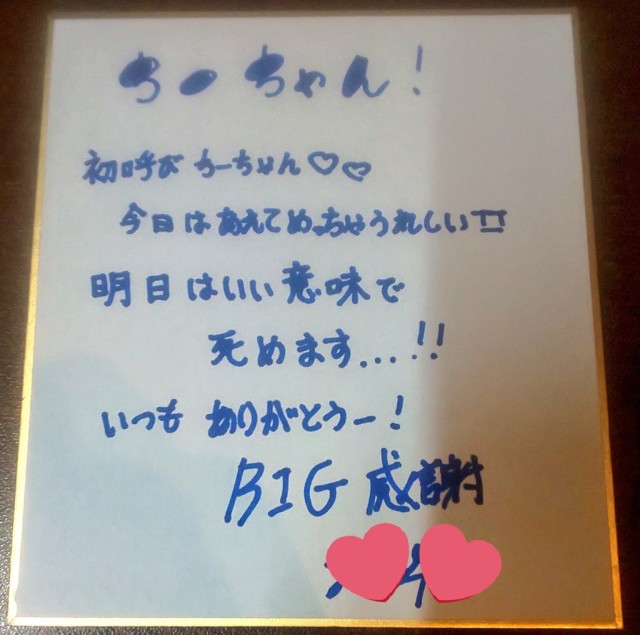 ちーちゃん!
初呼び ちーちゃん♡♡
今日はあえてめっちゃうれしい!!
明日はいい意味で
死めます...!!
いつも ありがとうー!
BIG 感謝